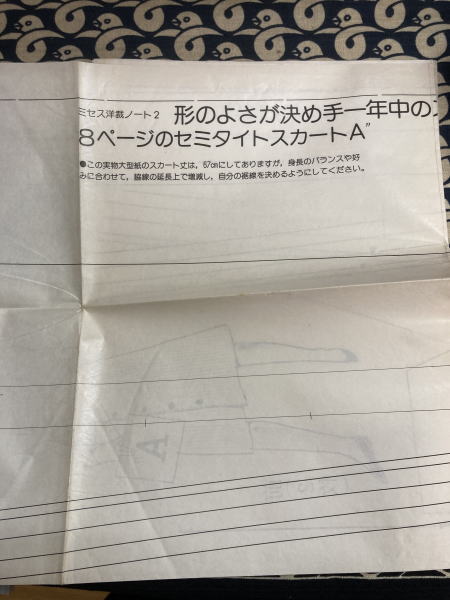 ミセス洋裁ノート2 形のよさが決め手一年中の
8ページのセミタイトスカートA"
●この実物大型紙のスカート丈は，67cmにしてありますが，身長のバランスや好
みに合わせて，脇線の延長上で増減し，自分の裾線を決めるようにしてください。
A